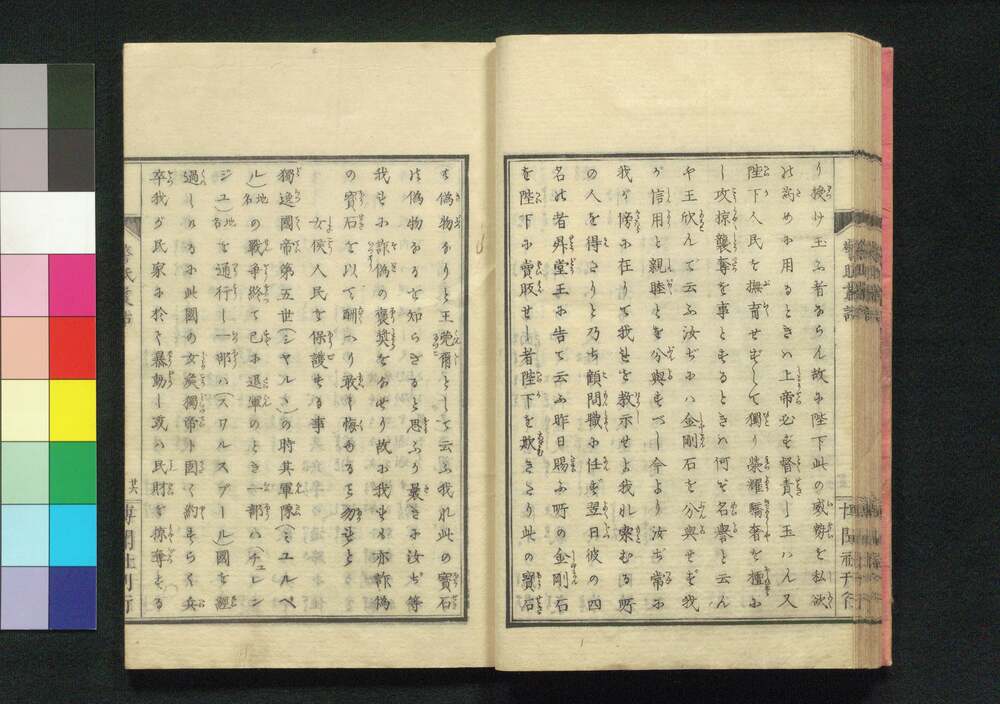 り授け玉ふ者ならん故に陛下此の威勢を私欲
の為めに用るときハ上帝必ず督責し玉ハん又
陛下人民を撫育せずして獨り榮耀驕奢を擅に
し攻掠襲奪を事とするときハ何ぞ名譽と云ん
や王欣んて云ふ汝ぢにハ金剛石を分與せず我
が信用と親睦とを分與すべし今より汝ぢ常に
我が傍に在りて我れを教示せよ我れ求むる所
の人を得たりと乃ち顧問職に任ず翌日彼の四
名の者昇堂王に告て云ふ昨日賜ふ所の金剛石
を陛下に賣販せし者陛下を欺きたり此の寶石
ハ偽物なりと王莞爾として云ふ我れ此の寶石
の偽物なるを知らざると思ふか最さに汝ぢ等
我れに詐偽の褒奨をなせり故に我れも亦詐偽
の寶石を以て酬へり敢て悔ゆる勿れと
女侯人民を保護する事
獨逸國帝第五世(シャルヽ)の時其軍隊(ミユルベ
ル)地名の戰爭終て已に還軍のとき一部ハ(チュレン
ジユ)地名を通行し一部ハ(スワルスブール)國を經
過しけるに此國の女矦獨帝外國く約すらく兵
卒我が民家に於て暴動し或ハ民財を掠奪する
廿六
開社刊行